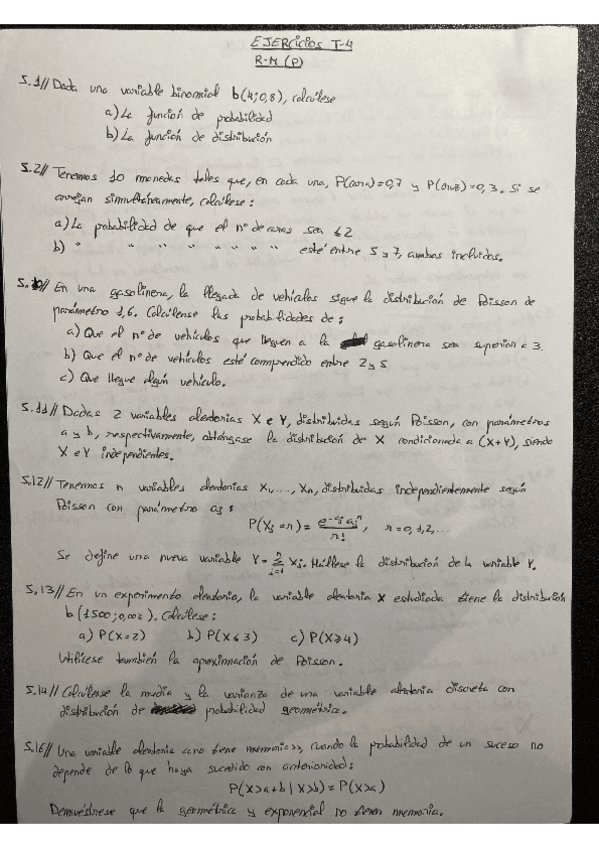 EJERCICIOS T-4
R-M (P)
5.1// Dada una variable binomial b(4;0,8), calcúlese
a) La función de probabilidad
b) La función de distribución
5.2// Tenemos 10 monedas tales que, en cada una, P(cara)=0,7 y P(cruz)=0,3. Si se
arrojan simultáneamente, calcúlese:
a) La probabilidad de que el nº de caras sea ≤2
b) " " " " " " " " esté entre 5 y 7, ambos incluidos.
5.10// En una gasolinera, la llegada de vehículos sigue la distribución de Poisson de
parámetro 1,6. Calcúlense las probabilidades de:
a) Que el nº de vehículos que lleguen a la gasolinera sea superior a 3.
b) Que el nº de vehículos esté comprendido entre 2 y 5
c) Que llegue algún vehículo.
5.11// Dadas 2 variables aleatorias X e Y, distribuidas según Poisson, con parámetros
a y b, respectivamente, obténgase la distribución de X condicionada a (X+Y), siendo
X e Y independientes.
5.12// Tenemos n variables aleatorias X₁,..., Xₙ, distribuidas independientemente según
Poisson con parámetro aⱼ:
P(Xⱼ=r) = e^{-aⱼ} aⱼ^r / r! , r=0,1,2,...
Se define una nueva variable Y = Σ_{j=1}^{n} Xⱼ. Hállese la distribución de la variable Y.
5.13// En un experimento aleatorio, la variable aleatoria X estudiada tiene la distribución
b(1500;0,002). Calcúlese:
a) P(X=2) b) P(X≤3) c) P(X≥4)
Utilícese también la aproximación de Poisson.
5.14// Calcúlense la media y la varianza de una variable aleatoria discreta con
distribución de probabilidad geométrica.
5.16// Una variable aleatoria <<no tiene memoria>>, cuando la probabilidad de un suceso no
depende de lo que haya sucedido con anterioridad:
P(X>a+b | X>b) = P(X>a)
Demuéstrese que la geométrica y exponencial no tienen memoria.